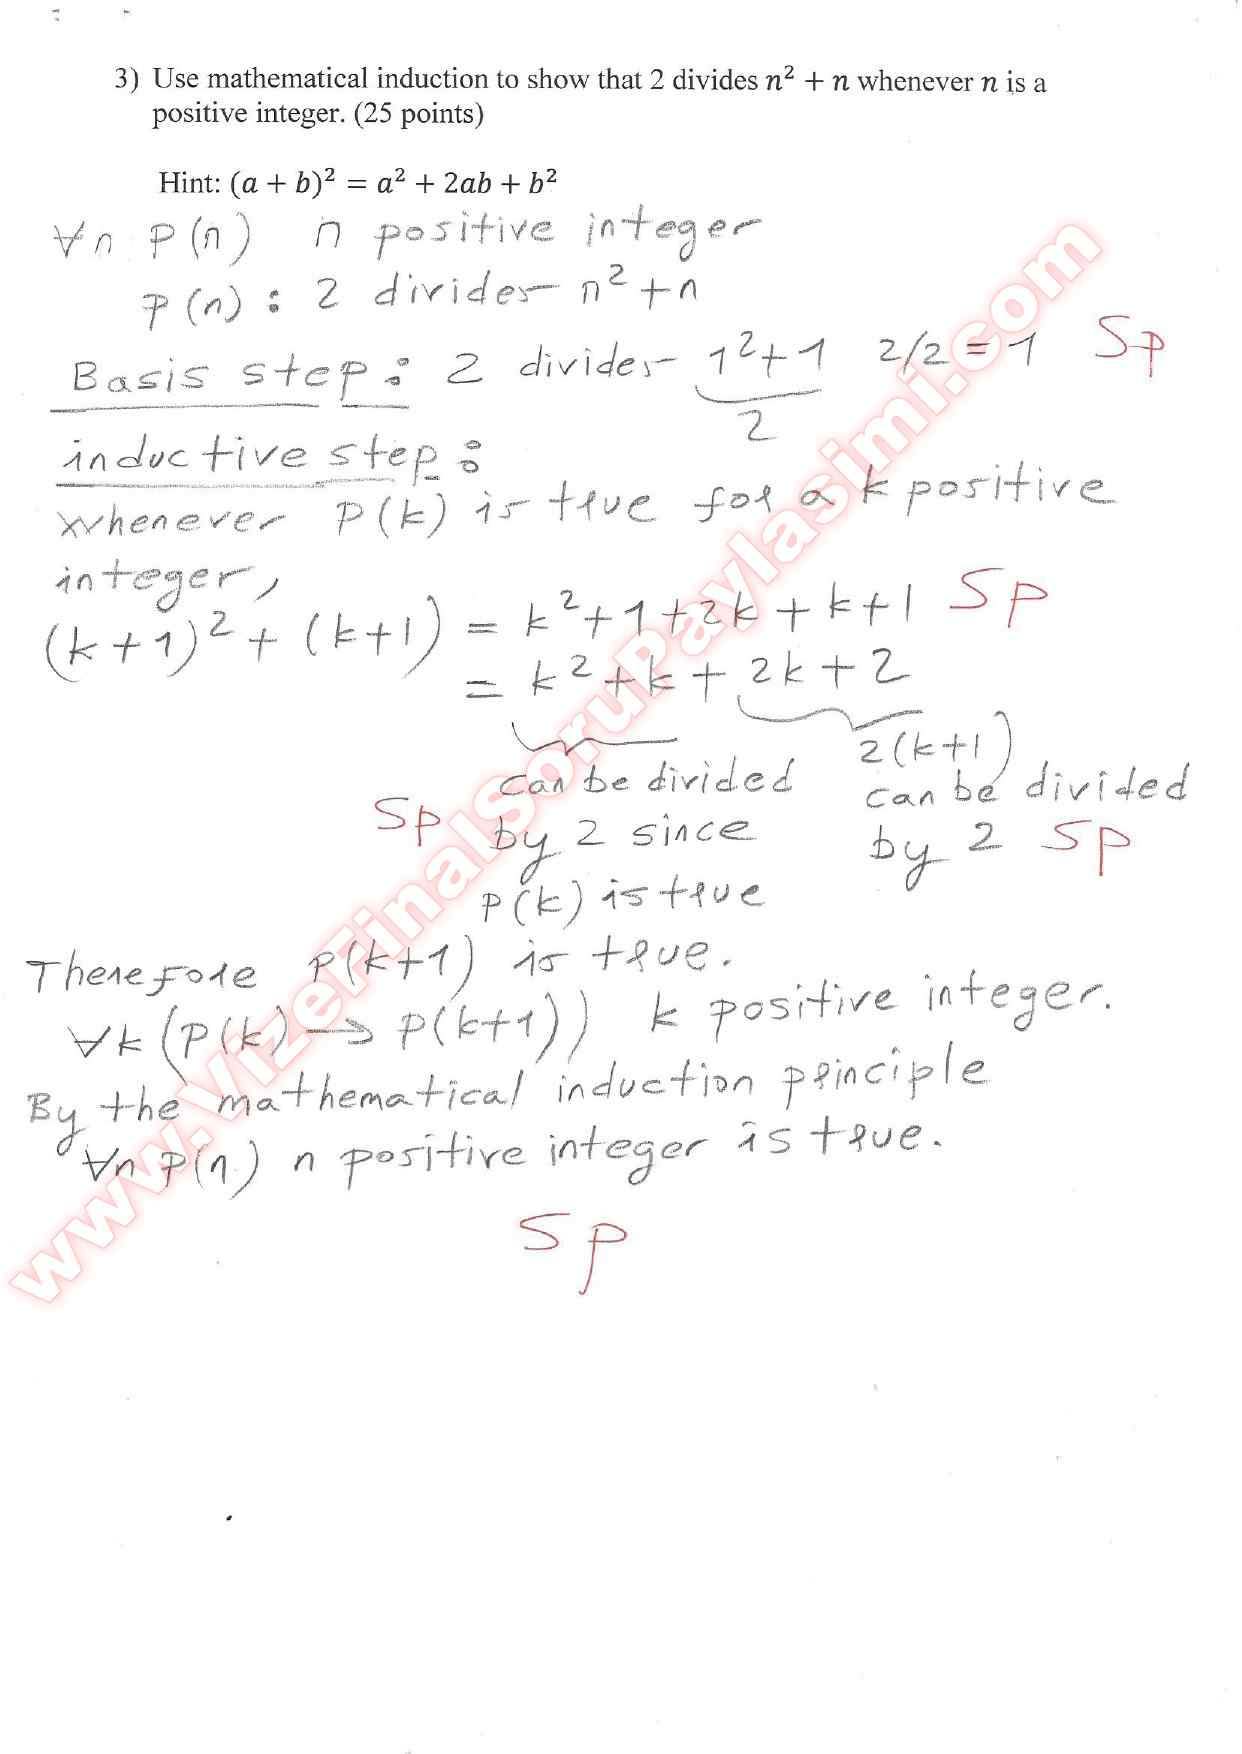 3) Use mathematical induction to show that 2 divides n² + n whenever n is a
positive integer. (25 points)
Hint: (a + b)² = a² + 2ab + b²
∀n P(n) n positive integer
P(n) : 2 divides n²+n
Basis step: 2 divides 1²+1 2/2=1 5p
2
inductive step:
whenever P(k) is true for a k positive
integer,
(k+1)² + (k+1) = k²+1+2k+k+1 5p
= k²+k+2k+2
2(k+1)
can be divided can be divided
5p by 2 since by 2 5p
P(k) is true
Therefore P(k+1) is true.
∀k(P(k)→P(k+1)) k positive integer.
By the mathematical induction principle
∀n P(n) n positive integer is true.
5p
www.VizeFinalSoruPaylasimi.com